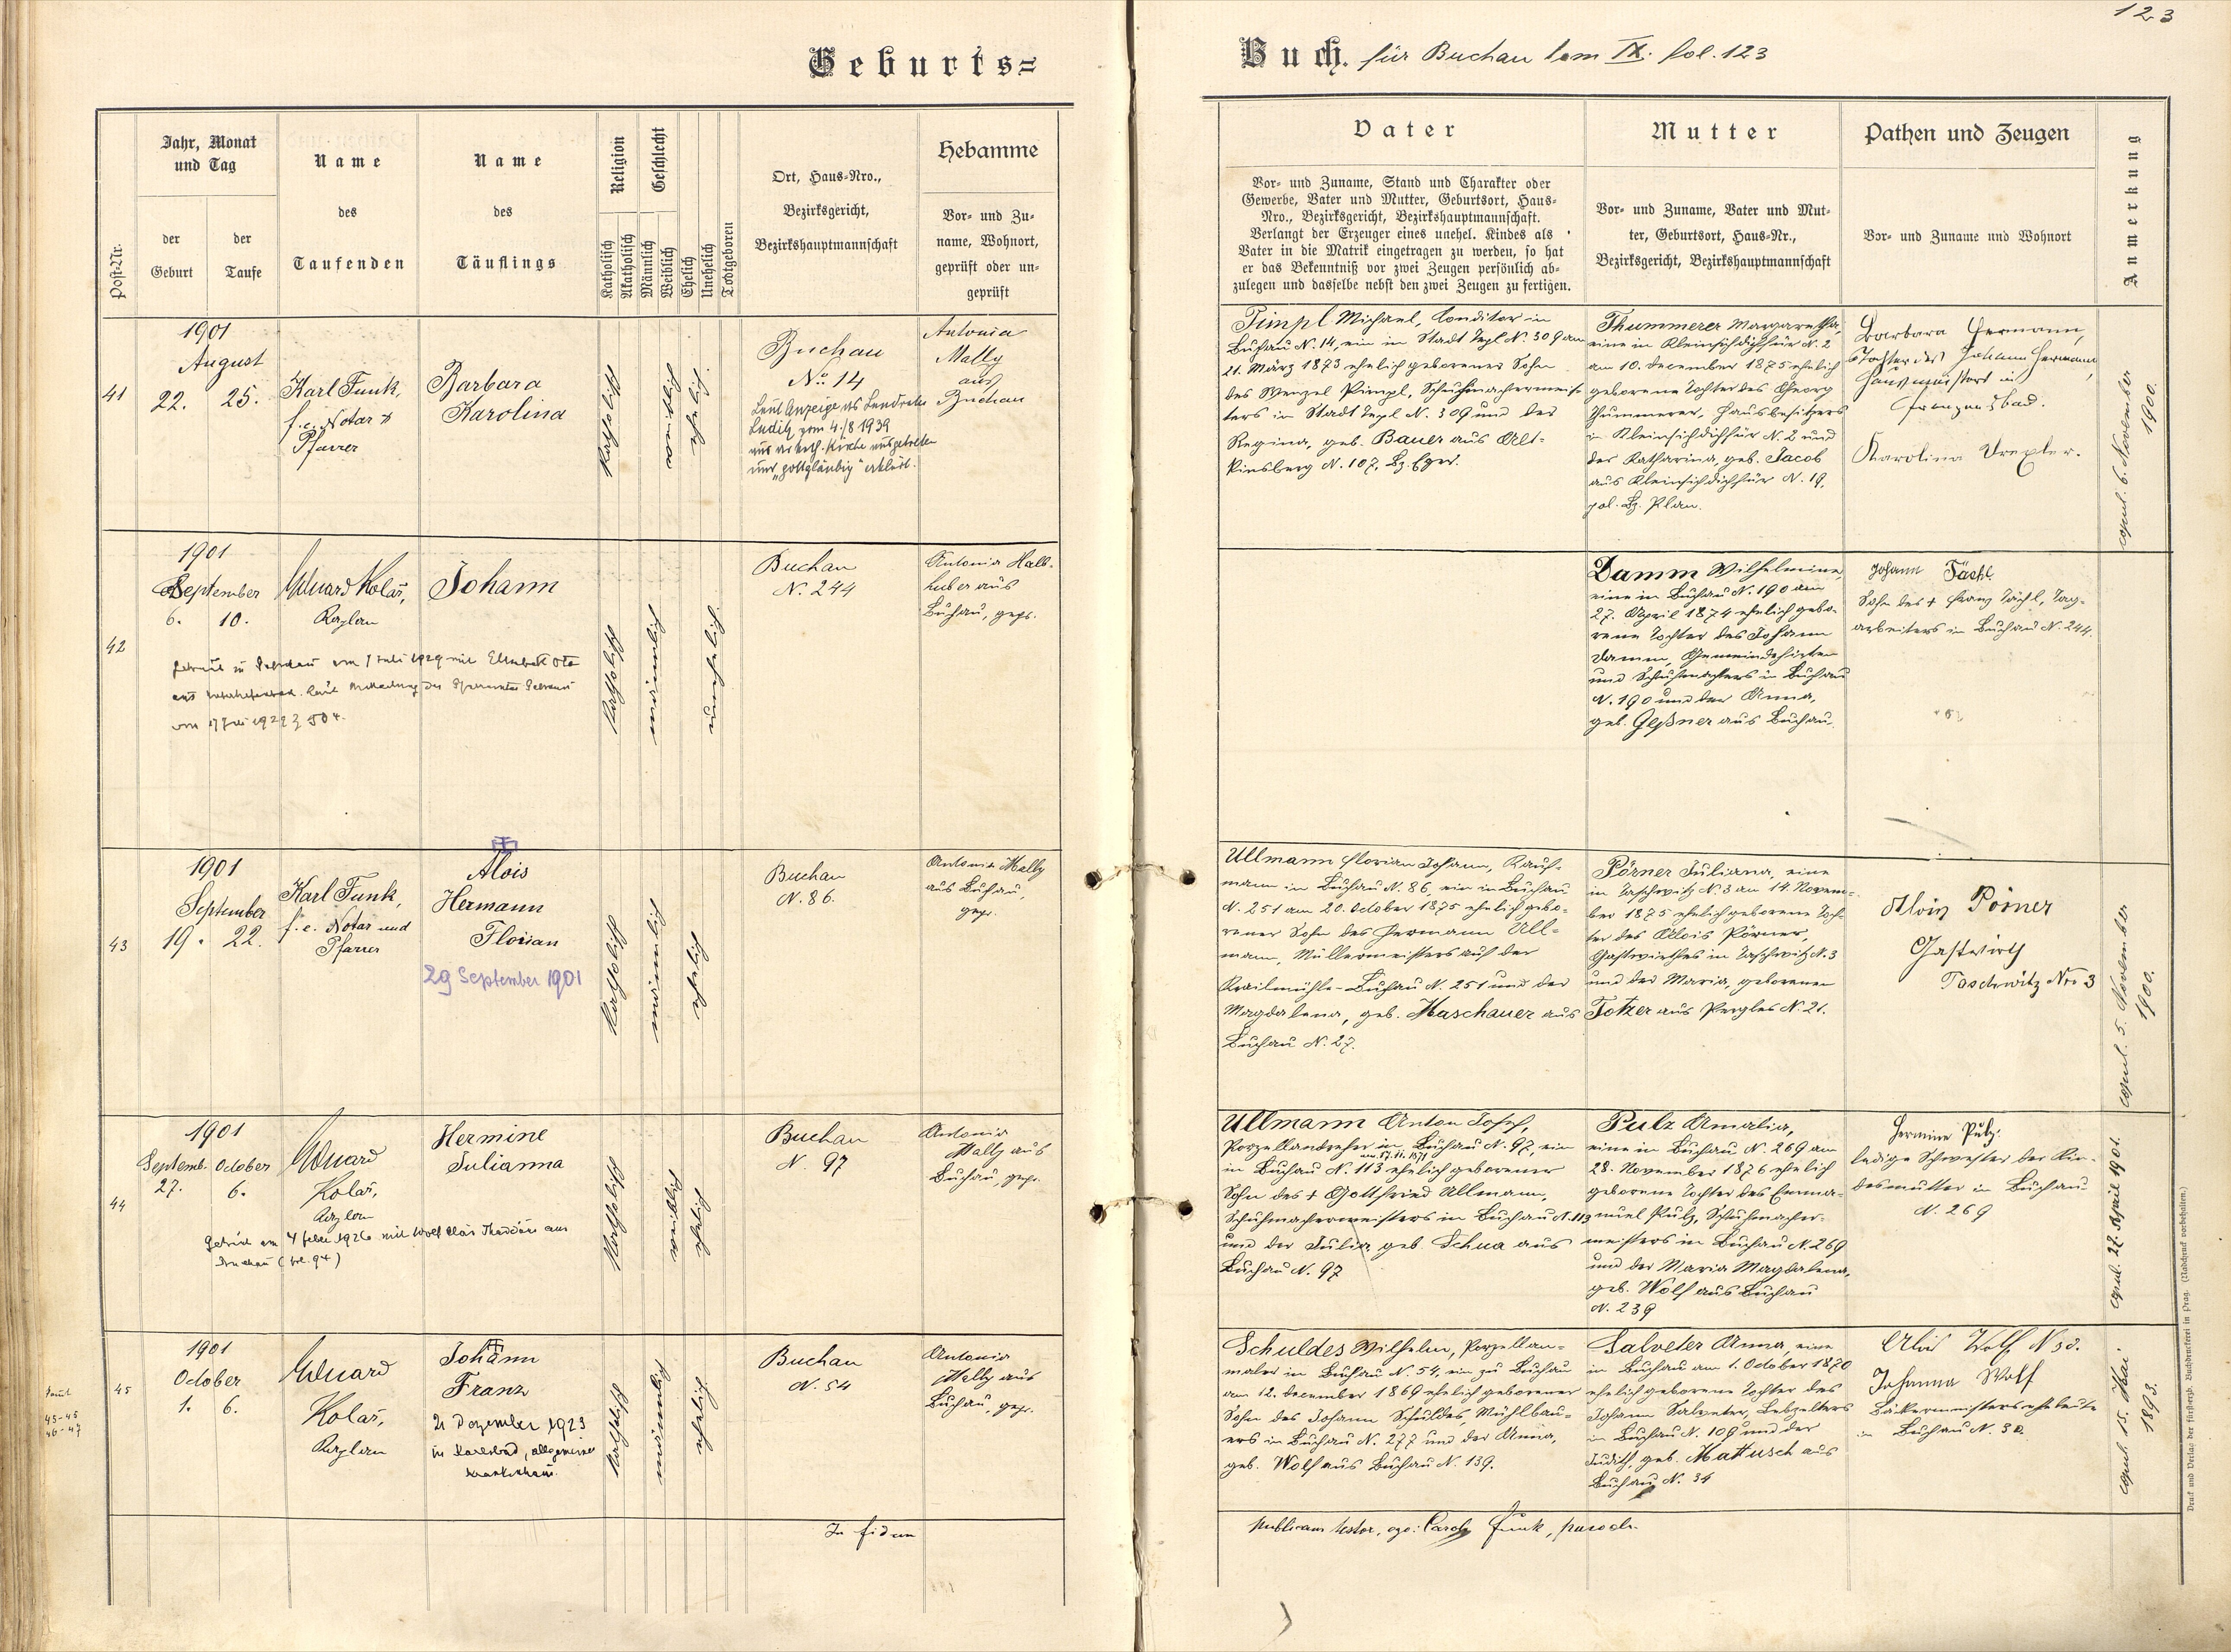 Geburts=
Buch. für Buchau tom IX. fol. 123
123
Post-Nr.
Jahr, Monat
und Tag
der
Geburt
der
Taufe
Name
des
Taufenden
Name
des
Täuflings
Religion
Katholisch
Akatholisch
Geschlecht
Männlich
Weiblich
Ehelich
Unehelich
Todtgeboren
Ort, Haus=Nro.,
Bezirksgericht,
Bezirkshauptmannschaft
Hebamme
Vor= und Zu=
name, Wohnort,
geprüft oder un=
geprüft
Vater
Vor= und Zuname, Stand und Charakter oder
Gewerbe, Vater und Mutter, Geburtsort, Haus=
Nro., Bezirksgericht, Bezirkshauptmannschaft.
Verlangt der Erzeuger eines unehel. Kindes als
Vater in die Matrik eingetragen zu werden, so hat
er das Bekenntniß vor zwei Zeugen persönlich ab=
zulegen und dasselbe nebst den zwei Zeugen zu fertigen.
Mutter
Vor= und Zuname, Vater und Mut=
ter, Geburtsort, Haus=Nr.,
Bezirksgericht, Bezirkshauptmannschaft
Pathen und Zeugen
Vor= und Zuname und Wohnort
Anmerkung
41
1901
August
22. 25.
Karl Funk,
f. e. Notar
Pfarrer
Barbara
Karolina
katholisch
weiblich
ehelich
Buchau
No. 14
Laut Anzeige des Landrates
Luditz vom 4./8 1939
aus der kath. Kirche ausgetreten
und "gottgläubig" erklärt.
Antonia
Mally
aus
Buchau
Pimpl Michael, Conditor in
Buchau N. 14, ein in Stadt Tepl N. 309 am
21. März 1873 ehelich geborener Sohn
des Wenzel Pimpl, Schuhmachermeis-
ters in Stadt Tepl N. 309 und der
Regina, geb. Bauer aus Alt-
Kinsberg N. 107, Bz. Eger.
Thummerer Margaretha,
eine in Kleinsichdichfür N. 2
am 10. December 1875 ehelich
geborene Tochter des Georg
Thummerer, Hausbesitzers
in Kleinsichdichfür N. 2 und
der Katharina, geb. Jacob
aus Kleinsichdichfür N. 19,
pol. Bz. Plan.
Barbara Hermann,
Tochter des Johann Hermann,
Hausmeisters in
Franzensbad.
Karolina Drexler.
copul. 6. November
1900.
42
1901
September
6. 10.
Eduard Kolař,
Kaplan
Johann
katholisch
männlich
unehelich
Buchau
N. 244
Antonia Halb-
huber aus
Buchau, gepr.
Damm Wilhelmine,
eine in Buchau N. 190 am
27. April 1874 ehelich gebo-
rene Tochter des Johann
Damm, Gemeindehirten
und Schuhmachers in Buchau
N. 190 und der Anna,
geb. Geßner aus Buchau.
Johann Tächl
Sohn des + Franz Tächl, Tag-
arbeiters in Buchau N. 244.
43
1901
September
19. 22.
Karl Funk,
f. e. Notar und
Pfarrer
Alois
Hermann
Florian
29 September 1901
katholisch
männlich
ehelich
Buchau
N. 86.
Antonia Mally
aus Buchau,
gepr.
Ullmann Florian Johann, Kauf-
mann in Buchau N. 86, ein in Buchau
N. 251 am 20. October 1875 ehelich gebo-
rener Sohn des Hermann Ull-
mann, Müllermeisters auf der
Krailmühle-Buchau N. 251 und der
Magdalena, geb. Haschauer aus
Buchau N. 27.
Pörner Juliana, eine
in Taschwitz N. 3 am 14. Novem-
ber 1875 ehelich geborene Toch-
ter des Alois Pörner,
Gastwirthes in Taschwitz N. 3
und der Maria, geborenen
Totzer aus Pergles N. 21.
Alois Pörner
Gastwirth
Taschwitz Nro 3
copul. 5. November
1900.
44
1901
Septemb. October
27. 6.
Eduard
Kolař,
Kaplan
Hermine
Julianna
katholisch
weiblich
ehelich
Buchau
N. 97
Antonia
Mally aus
Buchau, gepr.
Ullmann Anton Josef,
Porzellandreher in Buchau N. 97, ein
am 17. 11. 1871
in Buchau N. 113 ehelich geborener
Sohn des + Gottfried Ullmann,
Schuhmachermeisters in Buchau N. 113
und der Julia, geb. Schua aus
Buchau N. 97
Pulz Amalia,
eine in Buchau N. 269 am
28. November 1876 ehelich
geborene Tochter des Emma-
nuel Pulz, Schuhmacher-
meisters in Buchau N. 269
und der Maria Magdalena,
geb. Wolf aus Buchau
N. 239
Hermine Pulz:
ledige Schwester der Kin-
desmutter in Buchau
N. 269
copul. 22. April 1901.
45
1901
October
1. 6.
Eduard
Kolař,
Kaplan
Johann
Franz
21 Dezember 1923
in Karlsbad, allgemeines
Krankenhaus.
katholisch
männlich
ehelich
Buchau
N. 54
Antonia
Mally aus
Buchau, gepr.
Schuldes Wilhelm, Porzellan-
maler in Buchau N. 54, ein zu Buchau
am 12. December 1869 ehelich geborener
Sohn des Johann Schuldes, Mühlbau-
ers in Buchau N. 277 und der Anna,
geb. Wolf aus Buchau N. 139.
Salveter Anna, eine
in Buchau am 1. October 1870
ehelich geborene Tochter des
Johann Salveter, Lebzelters
in Buchau N. 109 und der
Judith, geb. Mattusch aus
Buchau N. 34
Alois Wolf N 30.
Johanna Wolf
Bäckermeisterseheleute
in Buchau N. 30
copul. 15. Mai
1893.
45-45
46-47
In fidem
publicam testor, ego: Carol Funk, parochus
Druck und Verlag der fürsterzb. Buchdruckerei in Prag. (Nachdruck vorbehalten.)